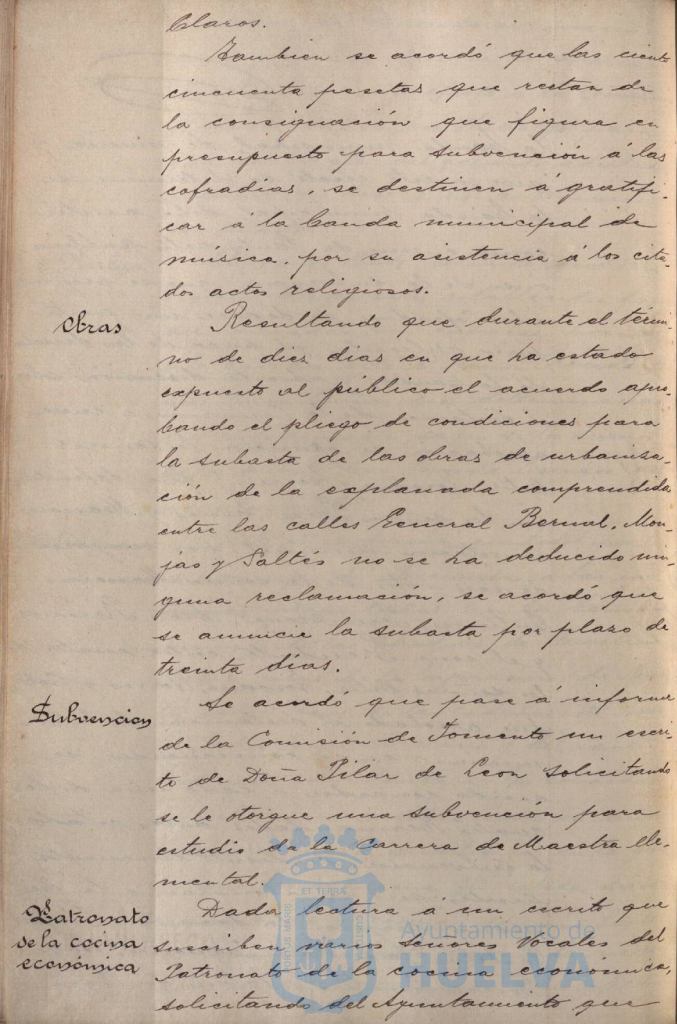 Claros.
Tambien se acordó que las ciento
cincuenta pesetas que restan de
la consignación que figura en
presupuesto para subvención á las
cofradias, se destinen á gratifi-
car á la banda municipal de
música, por su asistencia á los cita-
dos actos religiosos.
Obras
Resultando que durante el térmi-
no de diez dias en que ha estado
expuesto al público el acuerdo apro-
bando el pliego de condiciones para
la subasta de las obras de urbaniza-
ción de la explanada comprendida
entre las calles General Bernal, Mon-
jas y Saltés no se ha deducido nin-
guna reclamación, se acordó que
se anuncie la subasta por plazo de
treinta días.
Subvencion
Se acordó que pase á informe
de la Comisión de Fomento un escri-
to de Doña Pilar de Leon solicitando
se le otorgue una subvención para
estudio de la Carrera de Maestra ele-
mental.
Patronato
de la cocina
económica
Dada lectura á un escrito que
suscriben varios señores Vocales del
Patronato de la cocina económica,
solicitando del Ayuntamiento que
Ayuntamiento de
HUELVA